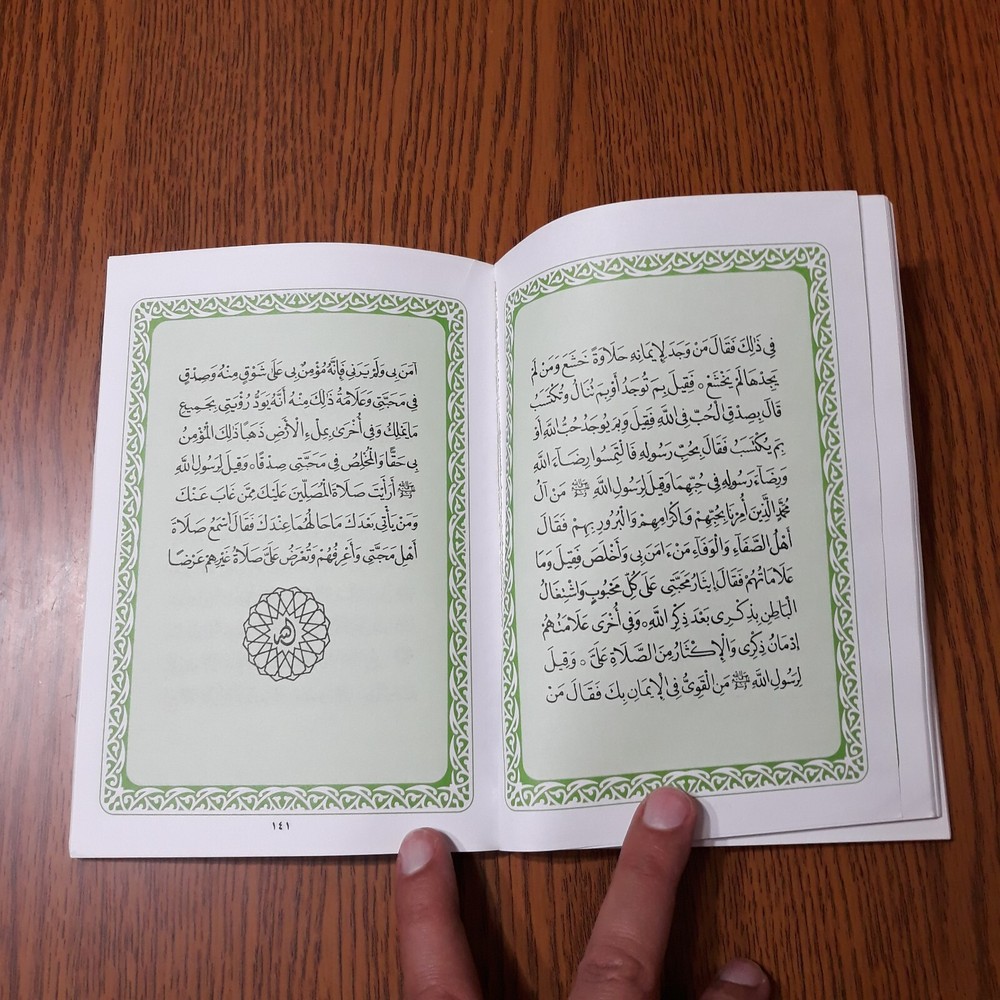 فِي ذَلِكَ فَقَالَ مَنْ وَجَدَ لِإِيمَانِهِ حَلَاوَةً خَشَعَ وَمَنْ لَمْ
يَجِدْهَا لَمْ يَخْشَعْ ۰ فَقِيلَ بِمَ تُوجَدُ أَوْ بِمَ تُنَالُ وَتُكْتَسَبُ
قَالَ بِصِدْقِ الْحُبِّ فِي اللهِ فَقِيلَ وَبِمَ يُوجَدُ حُبُّ اللهِ أَوْ
بِمَ يُكْتَسَبُ فَقَالَ بِحُبِّ رَسُولِهِ فَالْتَمِسُوا رِضَاءَ اللهِ
وَرِضَاءَ رَسُولِهِ فِي حُبِّهِمَا وَقِيلَ لِرَسُولِ اللهِ ﷺ مَنْ آلُ
مُحَمَّدٍ الَّذِينَ أُمِرْنَا بِحُبِّهِمْ وَإِكْرَامِهِمْ وَالْبُرُورِ بِهِمْ فَقَالَ
أَهْلُ الصَّفَاءِ وَالْوَفَاءِ مَنْ ءَامَنَ بِي وَأَخْلَصَ فَقِيلَ وَمَا
عَلَامَاتُهُمْ فَقَالَ إِيثَارُ مَحَبَّتِي عَلَى كُلِّ مَحْبُوبٍ وَاشْتِغَالُ
الْبَاطِنِ بِذِكْرِي بَعْدَ ذِكْرِ اللهِ ۰ وَفِي أُخْرَى عَلَامَتُهُمْ
إِدْمَانُ ذِكْرِي وَالْإِكْثَارُ مِنَ الصَّلَاةِ عَلَيَّ ۰ وَقِيلَ
لِرَسُولِ اللهِ ﷺ مَنِ الْقَوِيُّ فِي الْإِيمَانِ بِكَ فَقَالَ مَنْ
آمَنَ بِي وَلَمْ يَرَنِي فَإِنَّهُ مُؤْمِنٌ بِي عَلَى شَوْقٍ مِنْهُ وَصِدْقٍ
فِي مَحَبَّتِي وَعَلَامَةُ ذَلِكَ مِنْهُ أَنَّهُ يَوَدُّ رُؤْيَتِي بِجَمِيعِ
مَا يَمْلِكُ وَفِي أُخْرَى بِمِلْءِ الْأَرْضِ ذَهَبًا ذَلِكَ الْمُؤْمِنُ
بِي حَقًّا وَالْمُخْلِصُ فِي مَحَبَّتِي صِدْقًا ۰ وَقِيلَ لِرَسُولِ اللهِ
ﷺ أَرَأَيْتَ صَلَاةَ الْمُصَلِّينَ عَلَيْكَ مِمَّنْ غَابَ عَنْكَ
وَمَنْ يَأْتِي بَعْدَكَ مَا حَالُهُمَا عِنْدَكَ فَقَالَ أَسْمَعُ صَلَاةَ
أَهْلِ مَحَبَّتِي وَأَعْرِفُهُمْ وَتُعْرَضُ عَلَيَّ صَلَاةُ غَيْرِهِمْ عَرْضًا
١٤١